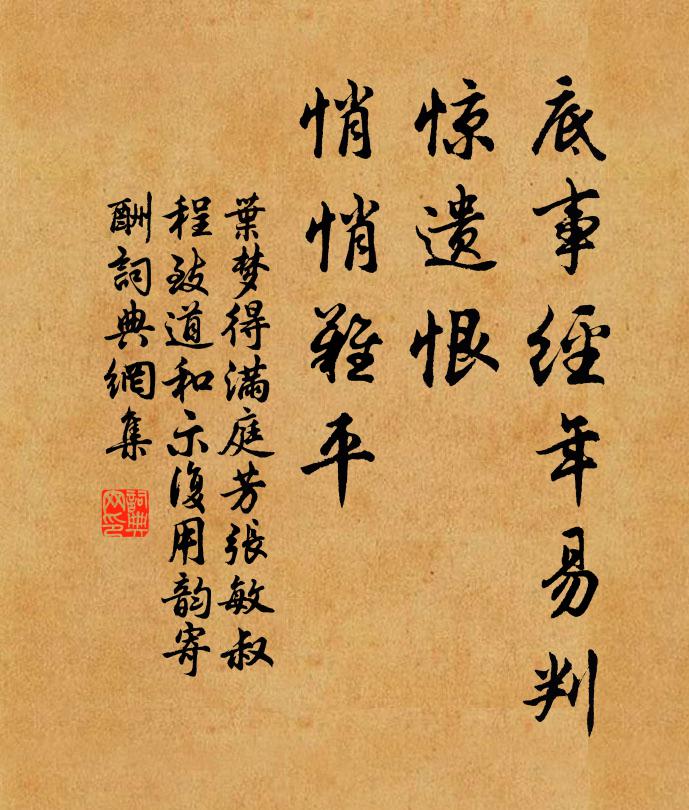 底事經年易判
惊遗恨
悄悄難平
葉梦得满庭芳張敏叔
程致道和示復用韵寄
酬詞典網集
詞典网印